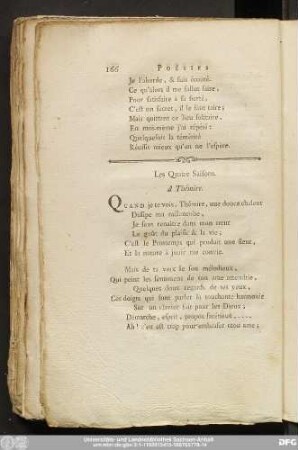 166 POÉSIES
Je l'aborde, & suis écouté.
Ce qu'alors il me fallut faire,
Pour satisfaire à sa fierté,
C'est un secret, il le faut taire;
Mais quittant ce lieu solitaire,
En moi-même j'ai répété:
Quelquefois la témérité
Réussit mieux qu'on ne l'espère.
Les Quatre Saisons.
A Thémire.
QUAND je te vois, Thémire, une douce chaleur
Dissipe ma nonchalance,
Je sens renaître dans mon cœur
Le goût du plaisir & la vie;
C'est le Printemps qui produit une fleur,
Et la nature à jouir me convie.
Mais de ta voix le son mélodieux,
Qui peint les sentimens de ton ame attendrie,
Quelques doux regards de tes yeux,
Ces doigts qui font parler la touchante harmonie
Sur un clavier fait pour les Dieux;
Démarche, esprit, propos sérieux.....
Ah! c'en est trop pour embraser mon ame;
Universitäts- und Landesbibliothek Sachsen-Anhalt